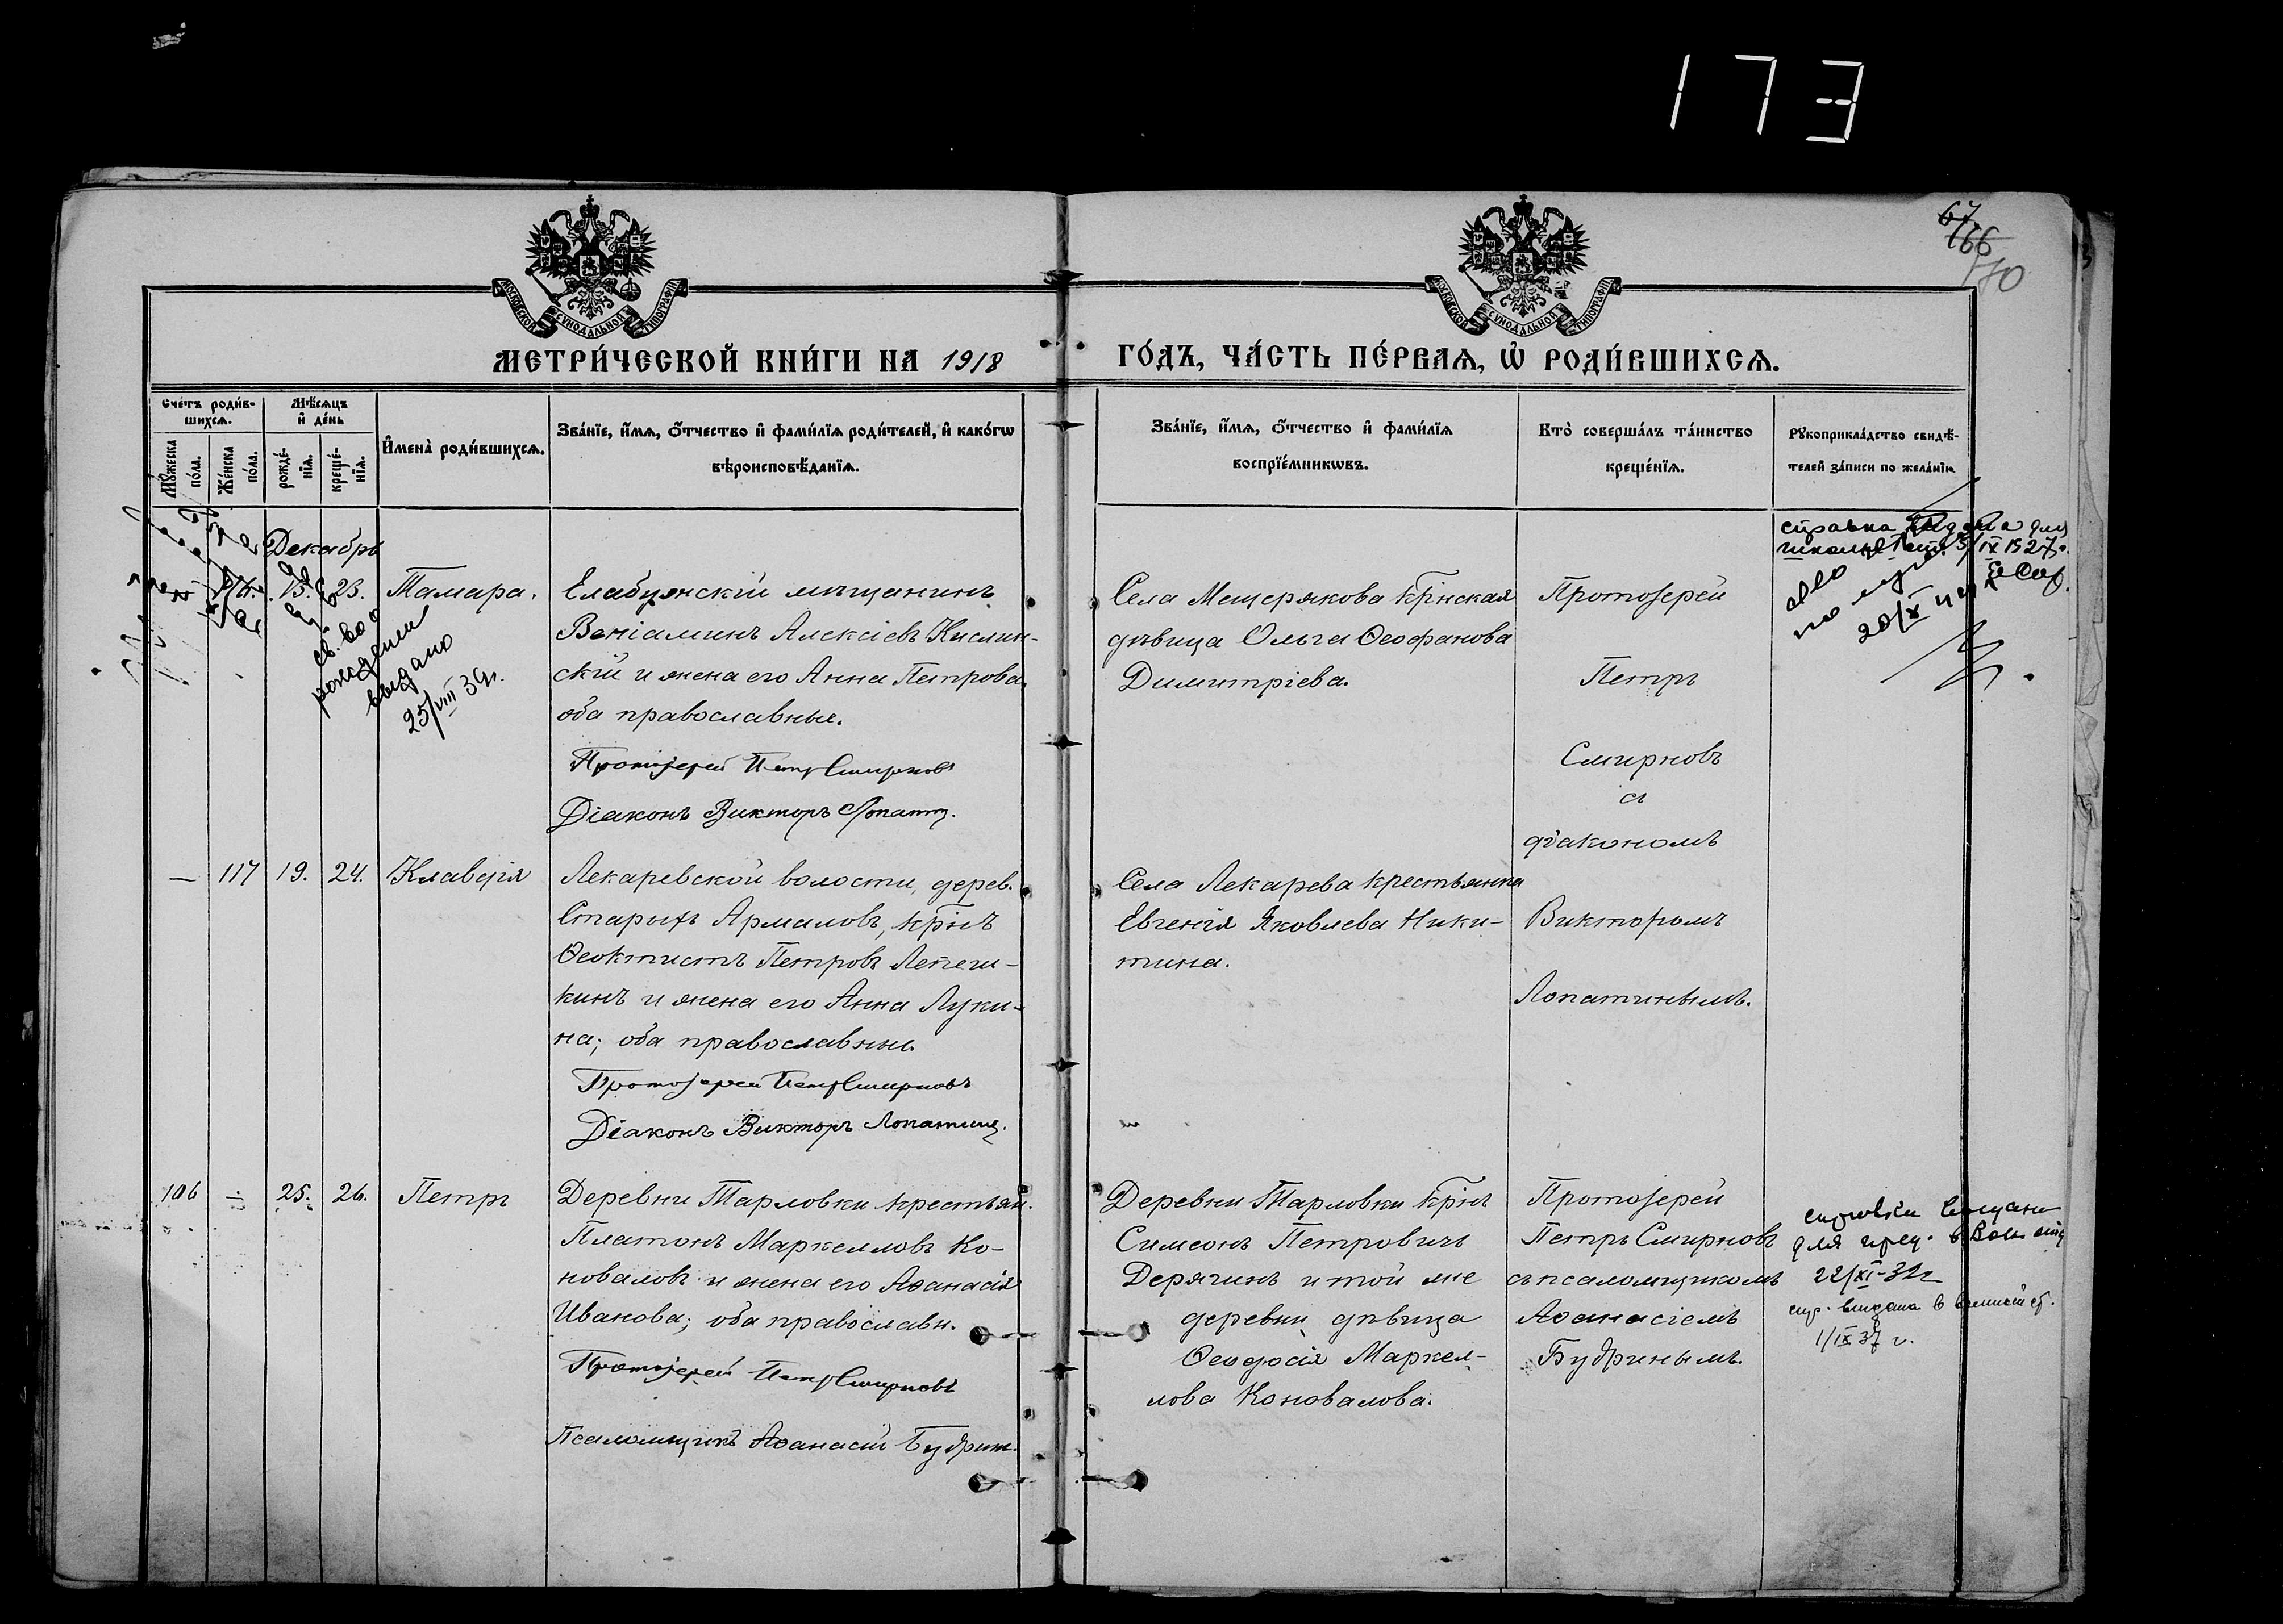 173
67
166
170
МОСКОВСКОЙ СУНОДАЛЬНОЙ ТИПОГРАФІИ
МОСКОВСКОЙ СУНОДАЛЬНОЙ ТИПОГРАФІИ
МЕТРИ́ЧЕСКОЙ КНИ́ГИ НА 1918
ГО́ДЪ, ЧА́СТЬ ПЕ́РВАѦ, Ѡ҆ РОДИ́ВШИХСѦ.
Сче́тъ роди́в-
шихсѧ.
Мꙋ́жеска по́ла.
Же́нска по́ла.
Мѣ́сѧцъ
и҆ де́нь
рожде́-
нїѧ.
креще́-
нїѧ.
И҆мена̀ роди́вшихсѧ.
Зва́нїе, и҆́мѧ, ѻ҆́тчество и҆ фами́лїѧ роди́телей, и҆ како́гѡ
вѣроисповѣ́данїѧ.
Зва́нїе, и҆́мѧ, ѻ҆́тчество и҆ фами́лїѧ
воспрїе́мникѡвъ.
Кто̀ соверша́лъ та́инство
креще́нїѧ.
Рꙋкоприкла́дство свидѣ́-
телей за́писи по жела́нїю
Декабрь
13. 23. Тамара.
св-во о
рождении
выдано
25/VIII 39г.
Елабужскій мѣщанинъ
Веніаминъ Алексіевъ Кислин-
скій и жена его Анна Петрова,
оба православные.
Протоіерей Петръ Смирновъ
Діаконъ Викторъ Лопатин.
Села Мещерякова кр̃нская
дѣвица Ольга Ѳеофанова
Димитріева.
Протоіерей
Петръ
Смирновъ
съ
діакономъ
Викторомъ
Лопатинымъ.
справка выдана для
IX 1927г.
20/X
— 117 19. 24. Клавдія
Лекаревской волости, дерев.
Старыхъ Армаловъ, кр̃нъ
Ѳеоктистъ Петровъ Лепеш-
кинъ и жена его Анна Луки-
на; оба православные.
Протоіерей Петръ Смирновъ
Діаконъ Викторъ Лопатин.
Села Лекарева крестьянка
Евгенія Яковлева Ники-
тина.
106 — 25. 26. Петръ
Деревни Тарловки крестьян.
Платонъ Маркелловъ Ко-
новаловъ и жена его Аѳанасія
Иванова; оба православн.
Протоіерей Петръ Смирновъ
Псаломщикъ Аѳанасій Будрин.
Деревни Тарловки кр̃нъ
Симеонъ Петровичъ
Дерягинъ и той же
деревни дѣвица
Ѳеодосія Маркел-
лова Коновалова.
Протоіерей
Петръ Смирновъ
съ псаломщикомъ
Аѳанасіемъ
Будринымъ.
для
22/XI-32г
спр. выдана в
1/IX 37 г.